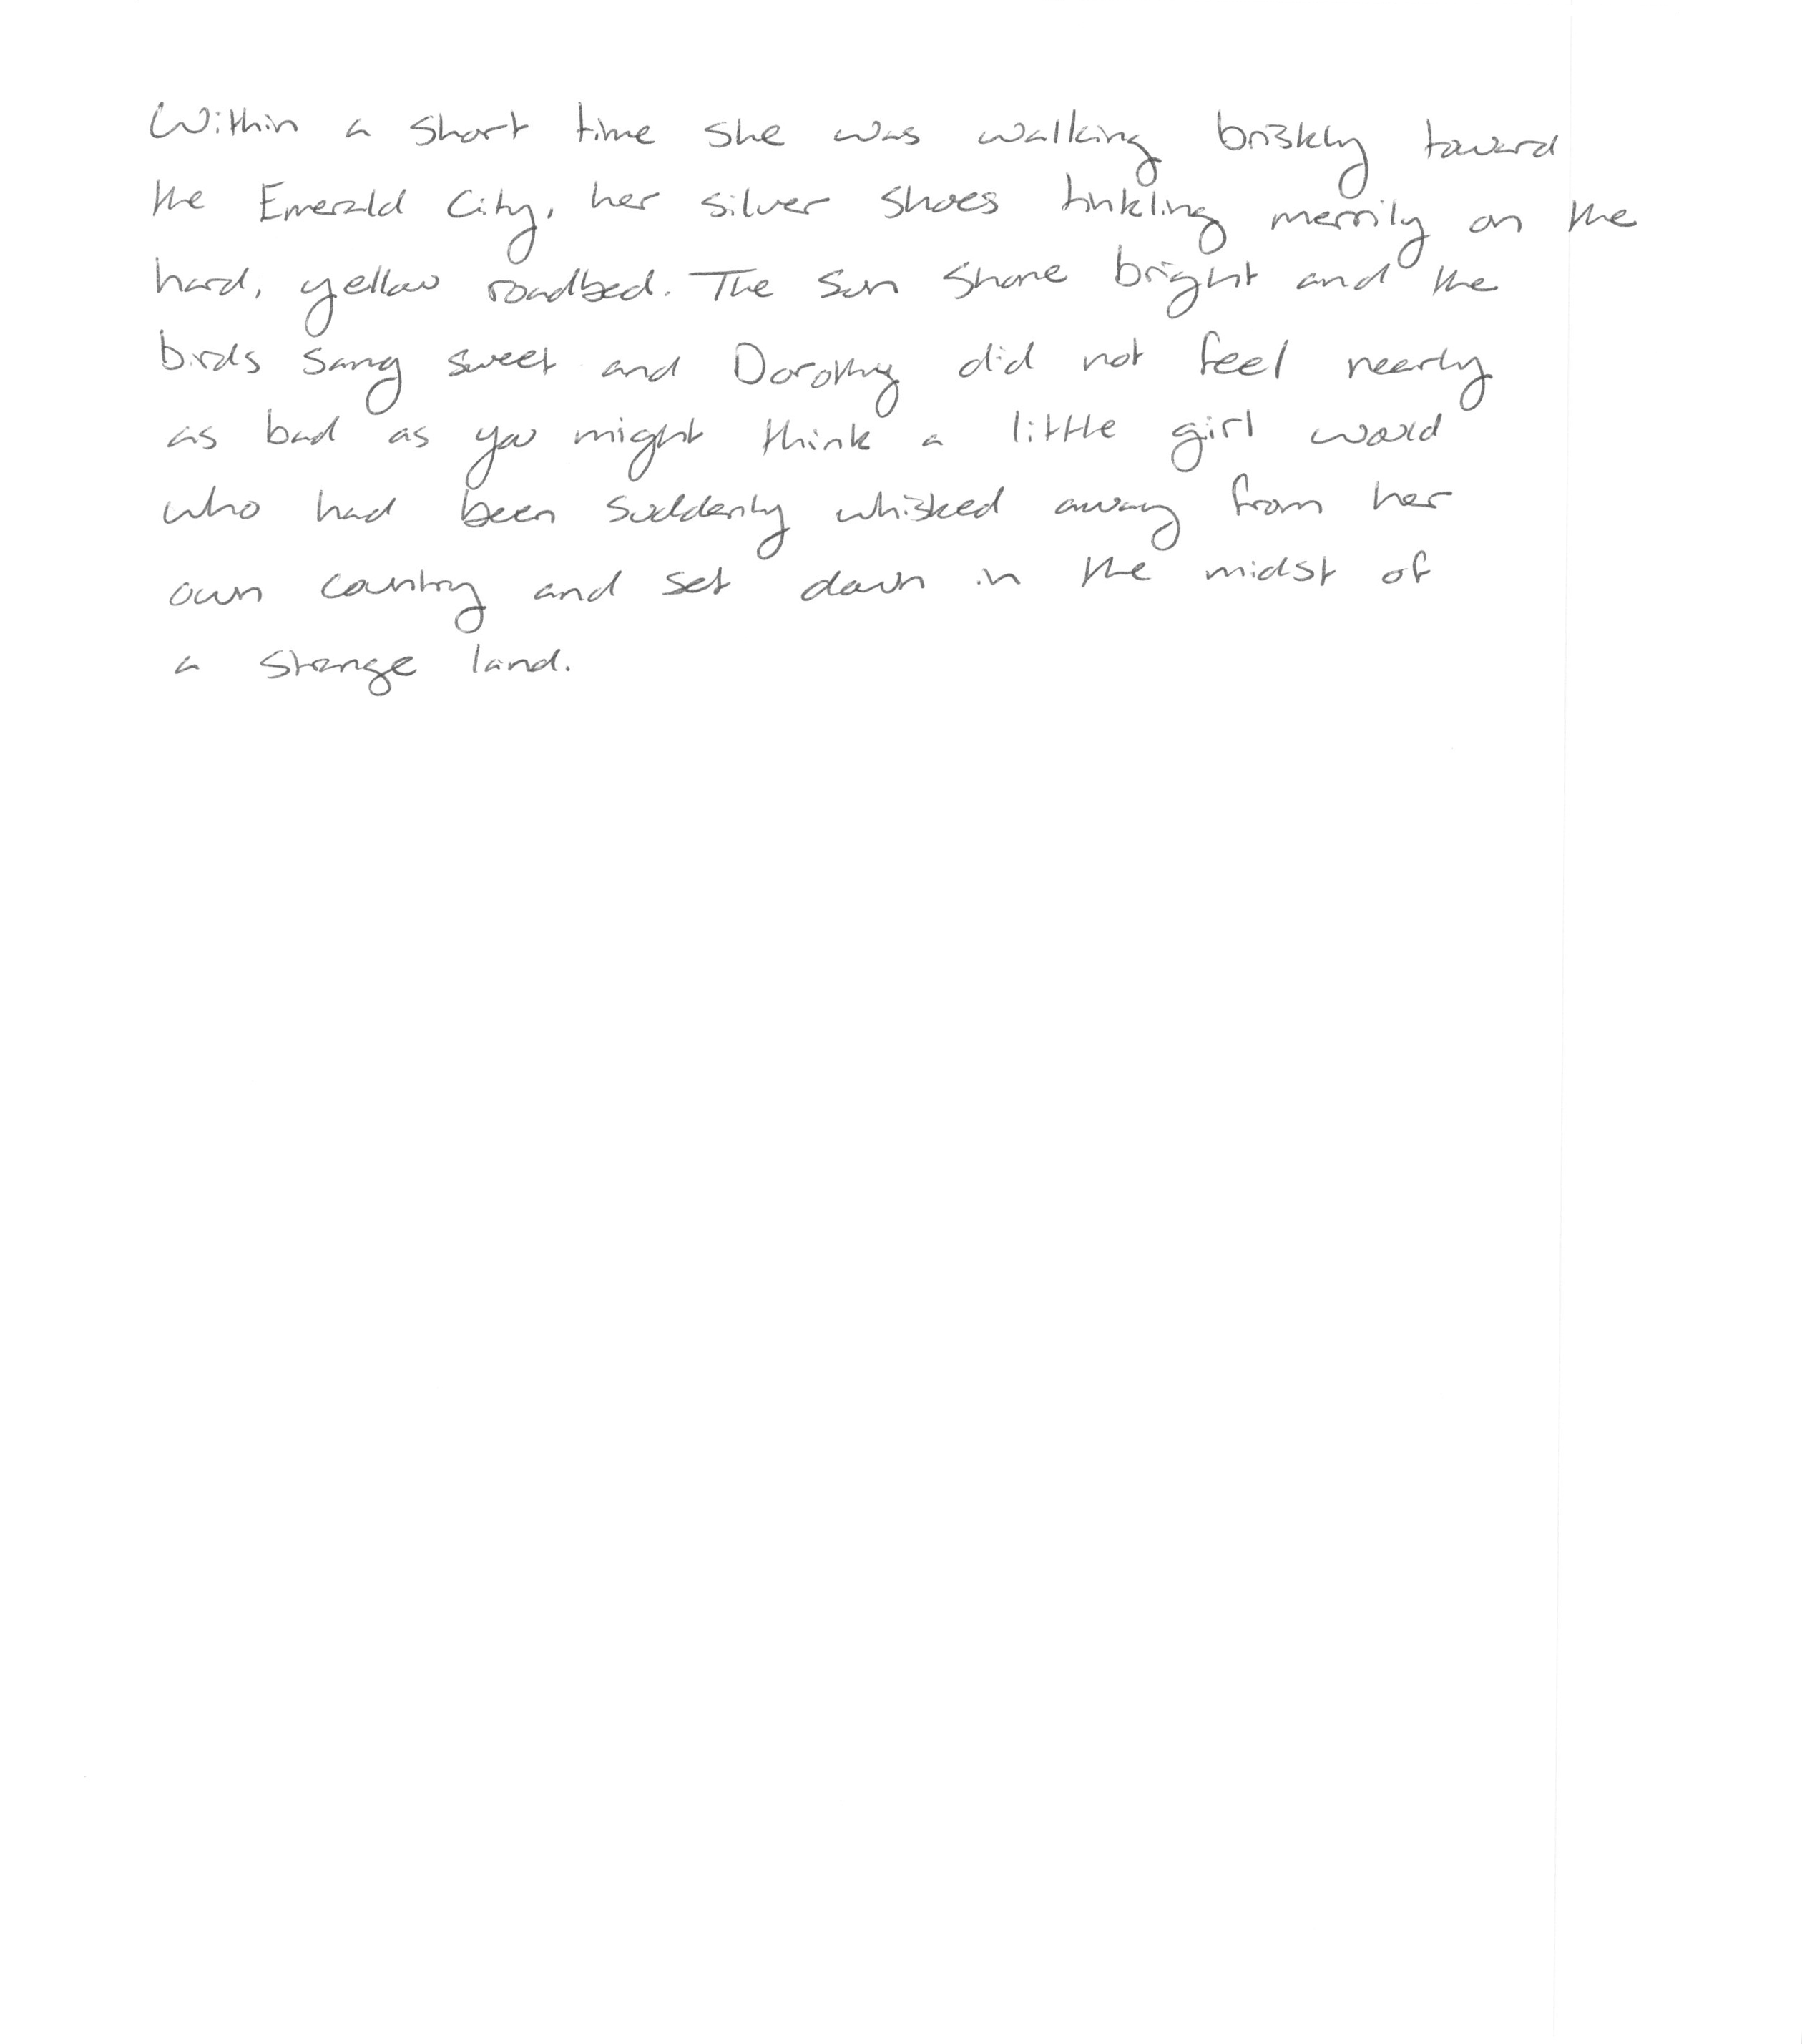 Within a short time she was walking briskly toward
the Emerald City, her silver shoes tinkling merrily on the
hard, yellow roadbed. The sun shone bright and the
birds sang sweet and Dorothy did not feel nearly
as bad as you might think a little girl would
who had been suddenly whisked away from her
own country and set down in the midst of
a strange land.